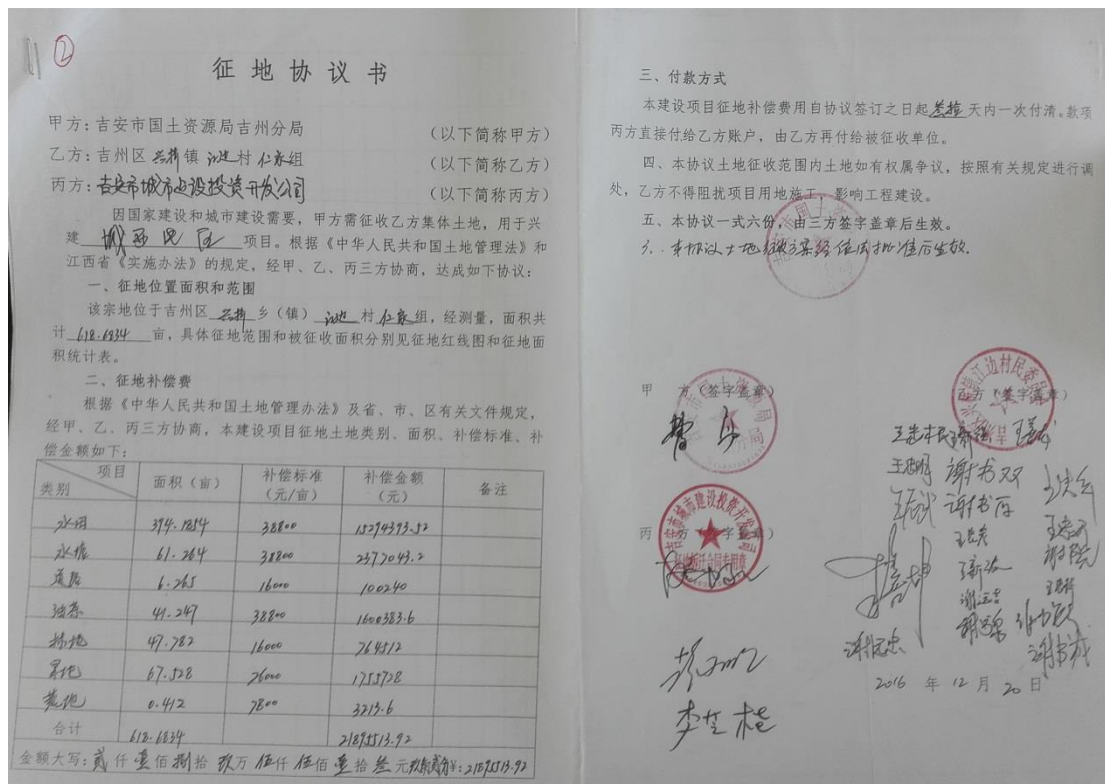 ②
征地协议书
甲方：吉安市国土资源局吉州分局 （以下简称甲方）
乙方：吉州区兴桥镇江边村仁家组 （以下简称乙方）
丙方：吉安市城市建设投资开发公司 （以下简称丙方）
因国家建设和城市建设需要，甲方需征收乙方集体土地，用于兴
建 城西片区 项目。根据《中华人民共和国土地管理法》和
江西省《实施办法》的规定，经甲、乙、丙三方协商，达成如下协议：
一、征地位置面积和范围
该宗地位于吉州区 兴桥 乡（镇） 江边 村 仁家 组，经测量，面积共
计 618.6834 亩，具体征地范围和被征收面积分别见征地红线图和征地面
积统计表。
二、征地补偿费
根据《中华人民共和国土地管理办法》及省、市、区有关文件规定，
经甲、乙、丙三方协商，本建设项目征地土地类别、面积、补偿标准、补
偿金额如下：
项目 类别 面积（亩） 补偿标准（元/亩） 补偿金额（元） 备注
水田 394.1854 38800 15294393.52
水塘 61.264 38800 2377043.2
道路 6.265 16000 100240
油茶 41.247 38800 1600383.6
林地 47.782 16000 764512
旱地 67.528 26000 1755728
荒地 0.412 7800 3213.6
合计 618.6834 21895513.92
金额大写：贰仟壹佰捌拾玖万伍仟伍佰壹拾叁元玖角贰分 ¥：21895513.92
三、付款方式
本建设项目征地补偿费用自协议签订之日起叁拾天内一次付清。款项
丙方直接付给乙方账户，由乙方再付给被征收单位。
四、本协议土地征收范围内土地如有权属争议，按照有关规定进行调
处，乙方不得阻扰项目用地施工，影响工程建设。
五、本协议一式六份，由三方签字盖章后生效。
本协议土地征收方案经依法批准后生效.
甲 方（签字盖章） 乙方（签字盖章）
丙 方（签字盖章）
吉安市城市建设投资开发公司
谢书双
2016 年 12 月 20 日